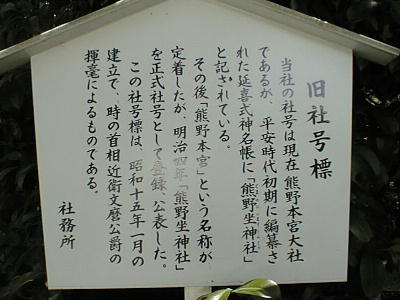 旧社号標
当社の社号は現在熊野本宮大社
であるが、平安時代初期に編纂さ
れた延喜式神名帳に「熊野坐神社」
と記されている。
その後「熊野本宮」という名称が
定着したが、明治四年「熊野坐神社」
を正式社号として登録、公表した。
この社号標は、昭和十五年一月の
建立で、時の首相近衛文麿公爵の
揮毫によるものである。
社務所